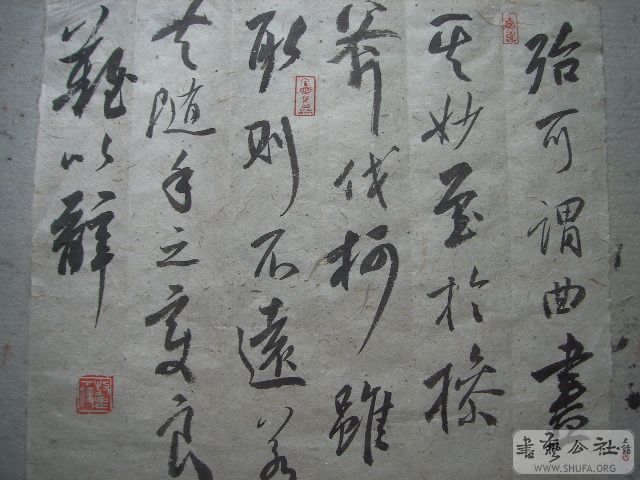 殆可謂曲盡
其妙至於操
斧伐柯雖
取則不遠若
夫隨手之變良
難以辭
書藝公社
WWW.SHUFA.ORG